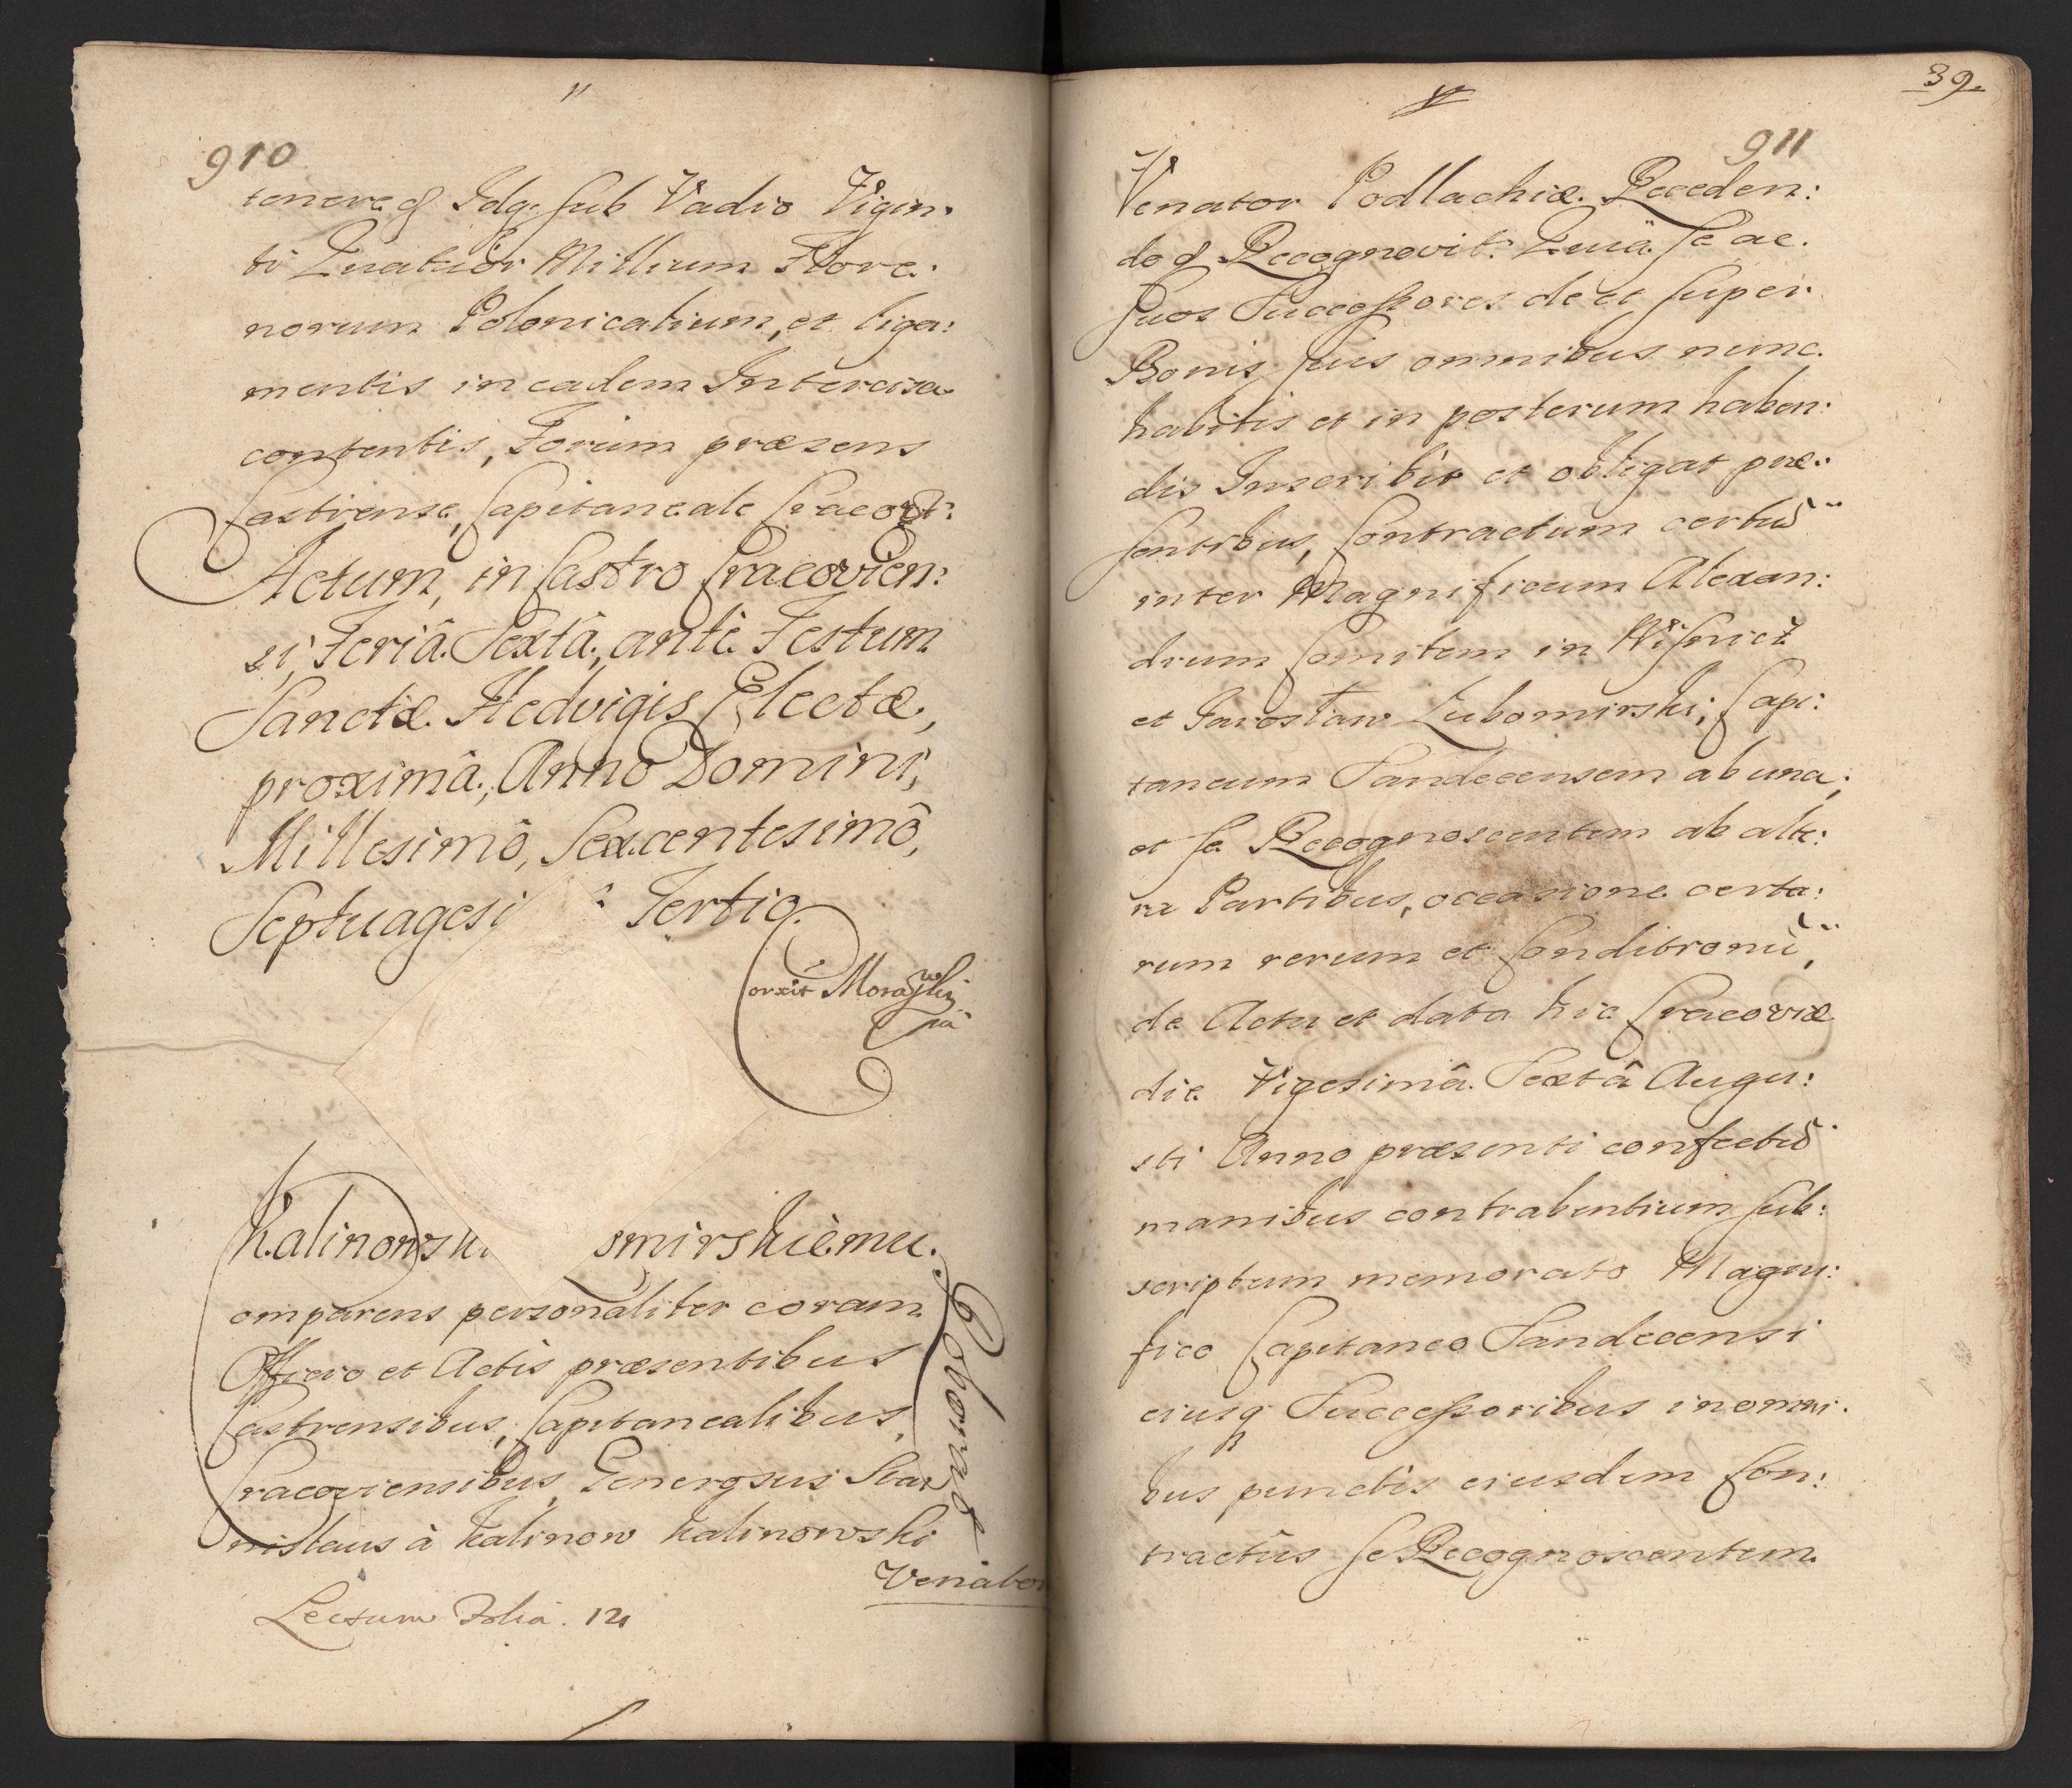 910
tenereq Idq sub Vadio Vigin:
ti Quatuor Millium Flore:
norum Polonicalium, et liga:
mentis in eadem Intercisa
contentis, Forum præsens
Castrense, Capitaneale Cracov:
Actum, in Castro Cracovien:
si, Feriâ Sextâ, ante Festum
Sanctæ Hedvigis Electæ,
proximâ, Anno Domini,
Millesimô, Sexcentesimô,
Septuagesi Tertio.
Corxit
Kalinowski omirskiemu.
Comparens personaliter coram
Officio et Actis præsentibus
Castrensibus, Capitanealibus,
Cracoviensibus, Generosus Sta
nislaus à Kalinow Kalinowski
Venator
Lectum Folia. 12
39.
911
Venator Podlachiæ. Receden:
doq Recognovit. Quia se ac
suos Successores de et super
Bonis suis omnibus nunc
habitis et in posterum haben:
dis Inscribit et obligat præ:
sentibus, Contractum certũ
inter Magnificum Alexan:
drum Comitem in Wisnicz
et Jarosław Lubomirski, Capi:
taneum Sandecensem ab una,
et se Recognoscentem ab alte:
ra Partibus, occasione certa:
rum rerum et Conditionũ,
de Actu et data hic Cracoviæ
die Vigesimâ Sextâ Augu:
sti Anno præsenti confectũ
manibus contrahentium sub:
scriptum memorato Magni:
fico Capitaneo Sandecensi
eiusq Successoribus in omni:
bus punctis eiusdem Con:
tractûs se Recognoscentem